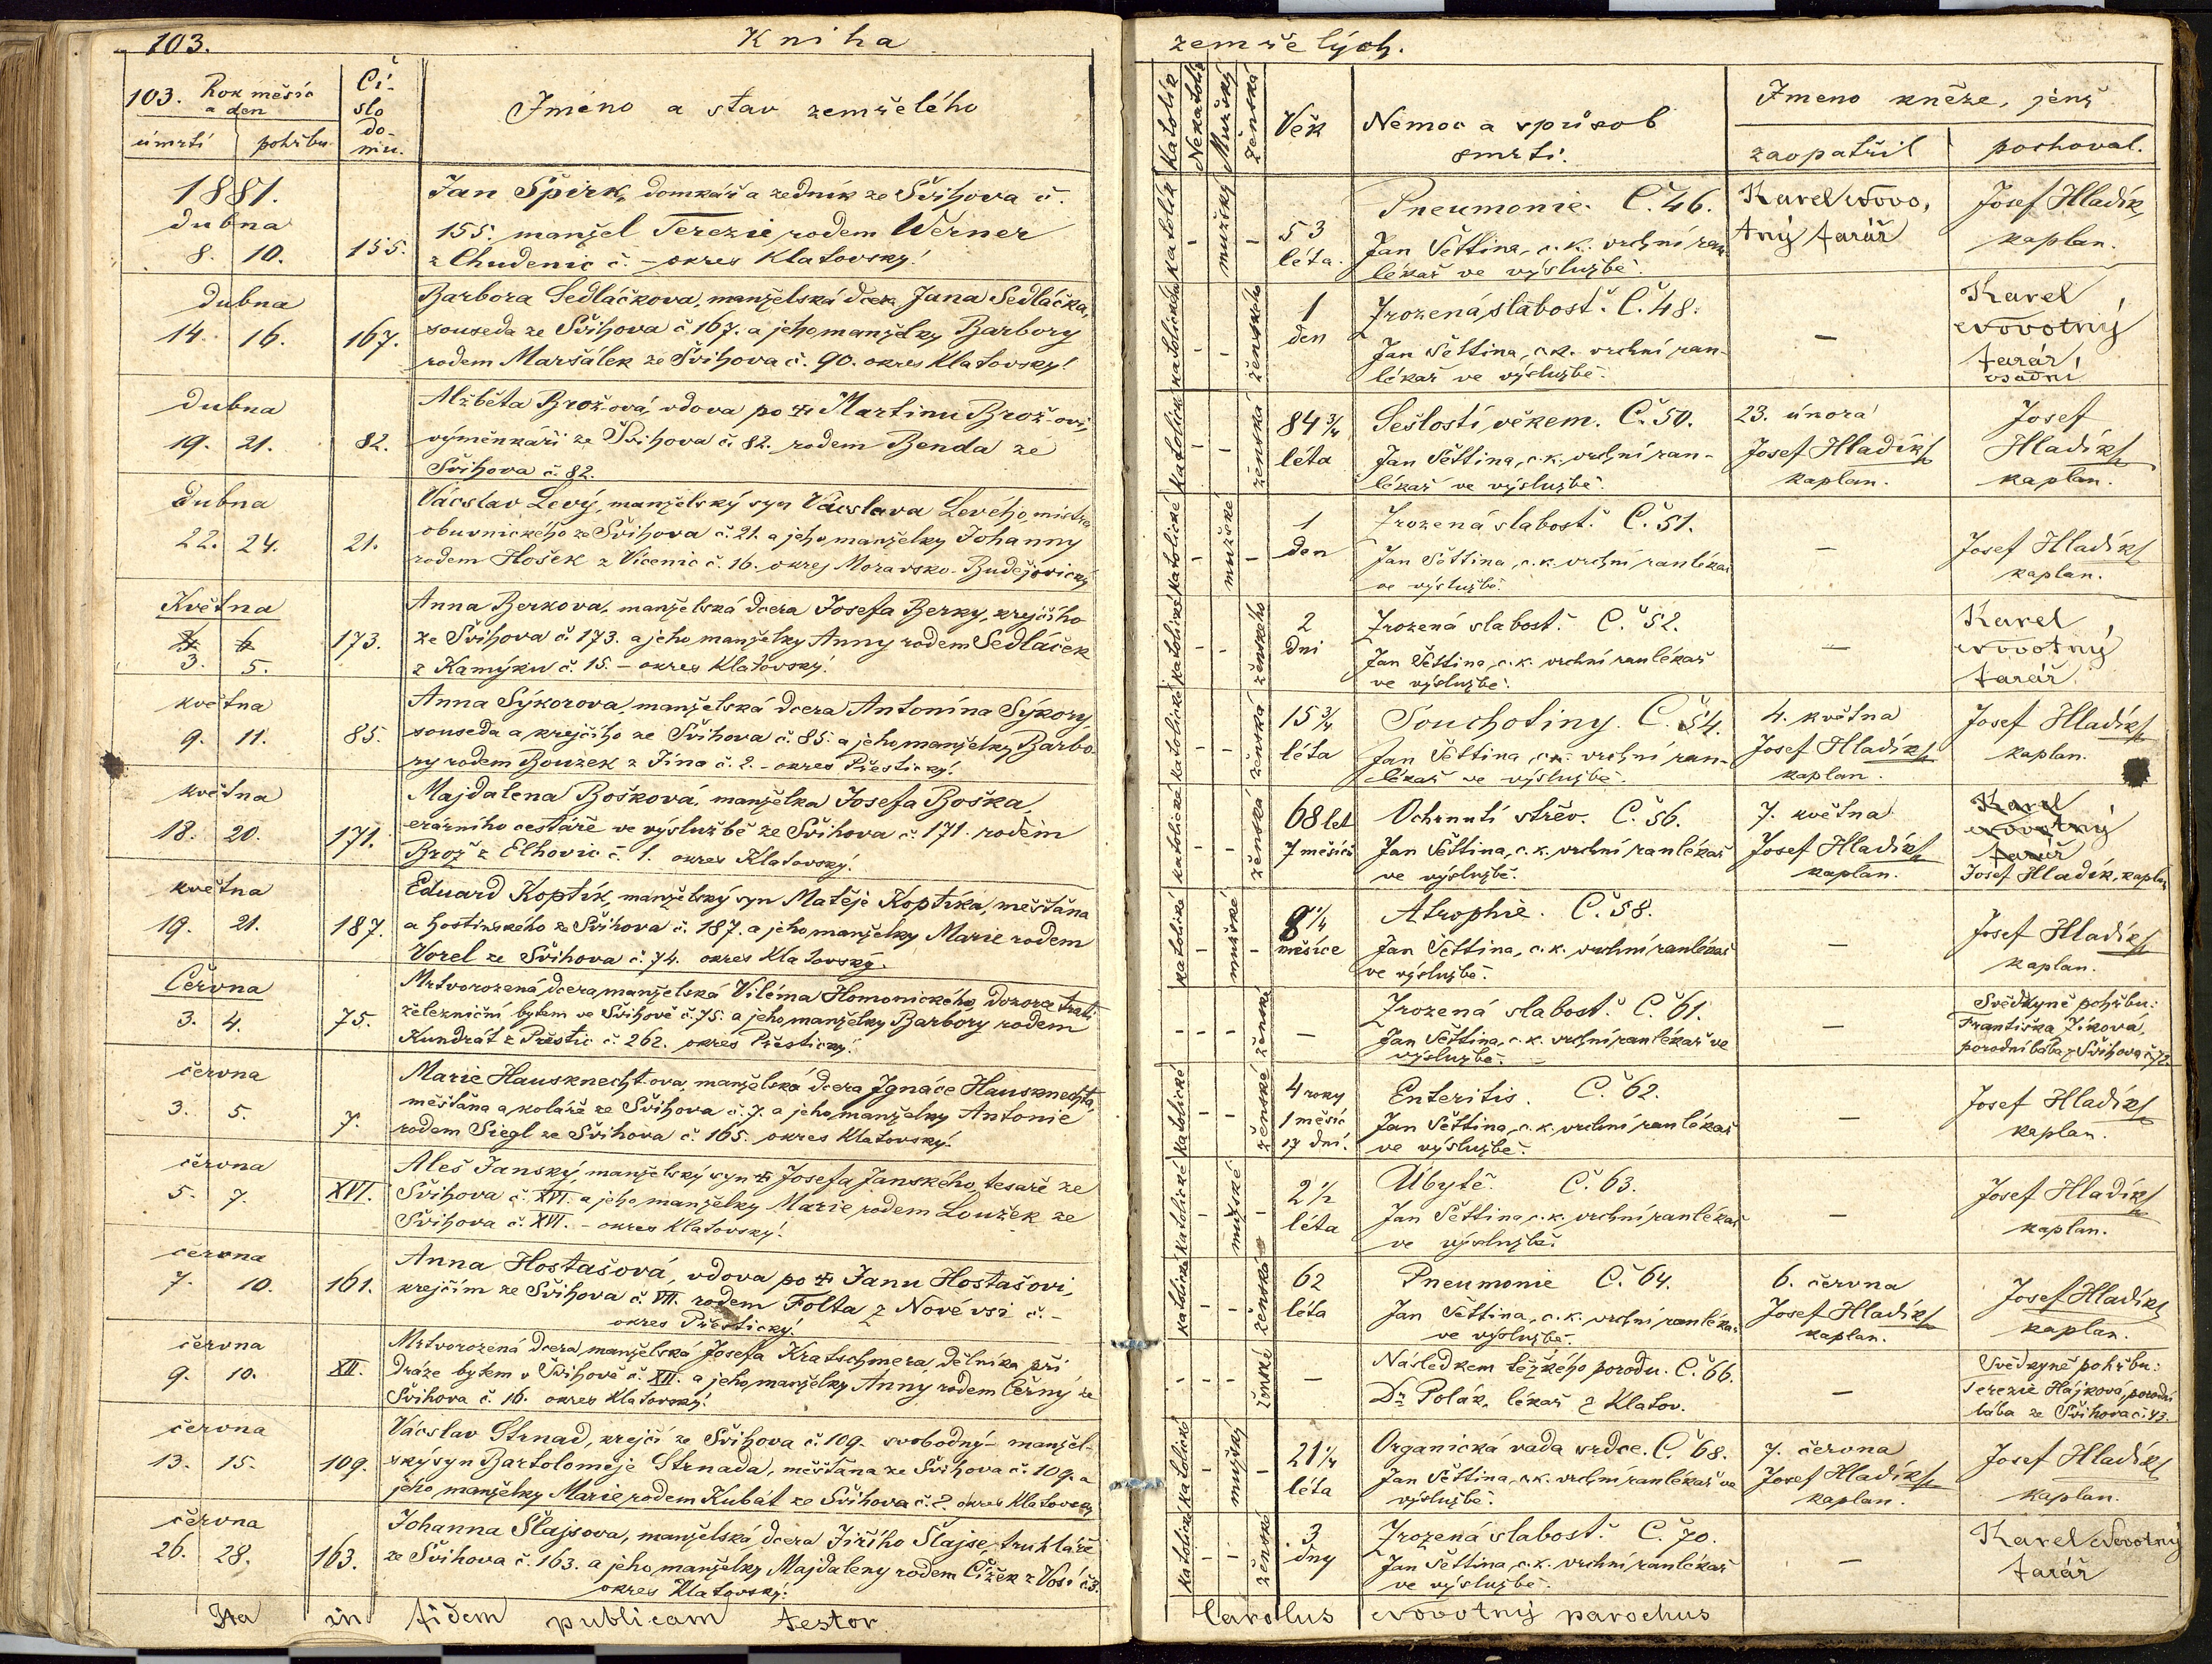 103. Kniha zemřelých.
103. Rok měsíc a den
úmrtí pohřbu
Číslo domu.
Jméno a stav zemřelého
Katolík
Nekatolík
Mužský
Ženská
Věk
Nemoc a způsob
smrti.
Jmeno kněze, jenž
zaopatřil
pochoval.
1881.
dubna
8. 10.
155.
Jan Špirk, domkář a zedník ze Švihova č.
155. manžel Terezie rodem Werner
z Chudenic č. – okres Klatovský!
katolík - mužský -
53
léta.
Pneumonie. Č. 46.
Jan Sěttina, c. k. vrchní ran-
lékař ve výslužbě.
Karel Novo,
tný farář
Josef Hladík,
kaplan.
dubna
14. 16.
167.
Barbora Sedláčkova, manželská dcera Jana Sedláčka,
souseda ze Švihova č. 167. a jeho manželky Barbory
rodem Maršálek ze Švihova č. 90. okres Klatovský!
katolického - - ženského
1
den
Zrozená slabost. Č. 48.
Jan Sěttina, c. k. vrchní ran-
lékař ve výslužbě.
–
Karel
Novotný
farář,
osadní
dubna
19. 21.
82.
Alžběta Brož-ová, vdova po Martinu Brož-ovi,
výměnkáři ze Švihova č. 82. rodem Benda ze
Švihova č. 82.
katolická - - ženská
84 3/4
léta
Sešlostí věkem. Č. 50.
Jan Sěttina, c. k. vrchní ran-
lékař ve výslužbě.
23. února
Josef Hladík
kaplan.
Josef
Hladík
kaplan.
dubna
22. 24.
21.
Vácslav Levý, manželský syn Vácslava Levého, mistra
obuvnického ze Švihova č. 21. a jeho manželky Johanny
rodem Hošek z Vícenic č. 16. okres Moravsko-Budějovický
katolické - mužské -
1
den
Zrozená slabost. Č. 51.
Jan Sěttina, c. k. vrchní ranlékař
ve výslužbě.
–
Josef Hladík
kaplan.
Května
3. 5.
173.
Anna Berkova, manželská dcera Josefa Berky, krejčího
ze Švihova č. 173. a jeho manželky Anny rodem Sedláček
z Kamýku č. 15. – okres Klatovský!
katolické - - ženského
2
dni
Zrozená slabost. Č. 52.
Jan Sěttina, c. k. vrchní ranlékař
ve výslužbě.
–
Karel
Novotný
farář.
května
9. 11.
85.
Anna Sýkorova, manželská dcera Antonína Sýkory,
souseda a krejčího ze Švihova č. 85. a jeho manželky Barbo-
ry rodem Bouzek z Jína č. 2. – okres Přestický!
katolické - - ženská
15 3/4
léta
Souchotiny. Č. 54.
Jan Sěttina, c. k. vrchní ran-
lékař ve výslužbě.
4. května
Josef Hladík
kaplan.
Josef Hladík
kaplan.
května
18. 20.
171.
Majdalena Bošková, manželka Josefa Boška,
erárního cestáře ve výslužbě ze Švihova č. 171. rodem
Brož z Elhovic č. 1. okres Klatovský!
katolická - - ženská
68 let
7 měsíců
Ochrnutí střev. Č. 56.
Jan Sěttina, c. k. vrchní ranlékař
ve výslužbě.
7. května
Josef Hladík
kaplan.
Karel
Novotný
farář
Josef Hladík, kaplan
května
19. 21.
187.
Eduard Koptík, manželský syn Matěje Koptíka, měšťana
a hostinského ze Švihova č. 187. a jeho manželky Marie rodem
Vorel ze Švihova č. 74. okres Klatovský.
katolické - mužské -
8 1/4
měsíce
Atrophie. Č. 58.
Jan Sěttina, c. k. vrchní ranlékař
ve výslužbě.
–
Josef Hladík
kaplan.
Června
3. 4.
75.
Mrtvorozená dcera manželská Viléma Homonického, dozorce trati
železniční bytem ve Švihově č. 75. a jeho manželky Barbory rodem
Kundrát z Přeštic č. 262. okres Přestický!
- - - ženské
–
Zrozená slabost. Č. 61.
Jan Sěttina, c. k. vrchní ranlékař ve
výslužbě.
–
Svědkyně pohřbu:
Františka Jíková,
porodní bába z Švihova č. 72.
června
3. 5.
7.
Marie Hausknecht-ova, manželská dcera Ignáce Hausknechta,
měšťana a koláře ze Švihova č. 7. a jeho manželky Antonie
rodem Siegl ze Švihova č. 165. okres Klatovský!
katolické - - ženské
4 roky
1 měsíc
17 dní.
Enteritis. Č. 62.
Jan Sěttina, c. k. vrchní ranlékař
ve výslužbě.
–
Josef Hladík
kaplan.
června
5. 7.
XVI.
Aleš Janský, manželský syn Josefa Janského, tesaře ze
Švihova č. XVI. a jeho manželky Marie rodem Loužek ze
Švihova č. XVI. – okres Klatovský!
katolické - mužské -
2 1/2
léta
Úbytě. Č. 63.
Jan Sěttina, c. k. vrchní ranlékař
ve výslužbě.
–
Josef Hladík
kaplan.
června
7. 10.
161.
Anna Hostašová, vdova po Janu Hostašovi,
krejčím ze Švihova č. VII. rodem Folta z Nové vsi č. –
okres Přestický!
katolické - - ženská
62
léta
Pneumonie Č. 64.
Jan Sěttina, c. k. vrchní ranlékař
ve výslužbě.
6. června
Josef Hladík
kaplan.
Josef Hladík
kaplan.
června
9. 10.
XII.
Mrtvorozená dcera manželská Josefa Kratschmera, dělníka při
dráze bytem v Švihově č. XII. a jeho manželky Anny rodem Černý ze
Švihova č. 16. okres Klatovský!
- - - ženské
–
Následkem těžkého porodu. Č. 66.
Dr. Polák, lékař z Klatov.
–
Svědkyně pohřbu:
Terezie Hájková, porodní
bába ze Švihova č. 43.
června
13. 15.
109.
Vácslav Strnad, krejčí ze Švihova č. 109. svobodný – manžel-
ský syn Bartoloměje Strnada, měšťana ze Švihova č. 109. a
jeho manželky Marie rodem Kubát ze Švihova č. 2. okres Klatovský
katolické - mužský -
21 1/4
léta
Organická vada srdce. Č. 68.
Jan Sěttina, c. k. vrchní ranlékař ve
výslužbě.
7. června
Josef Hladík
kaplan.
Josef Hladík
kaplan.
června
26. 28.
163.
Johanna Šlajsova, manželská dcera Jiřího Šlajse, truhláře
ze Švihova č. 163. a jeho manželky Majdaleny rodem Čížek z Vosí č. 3.
okres Klatovský!
katolické - - ženské
3
dny
Zrozená slabost. Č. 70.
Jan Sěttina, c. k. vrchní ranlékař
ve výslužbě.
–
Karel Novotný
farář
Ita in fidem publicam testor
Carolus Novotný parochus